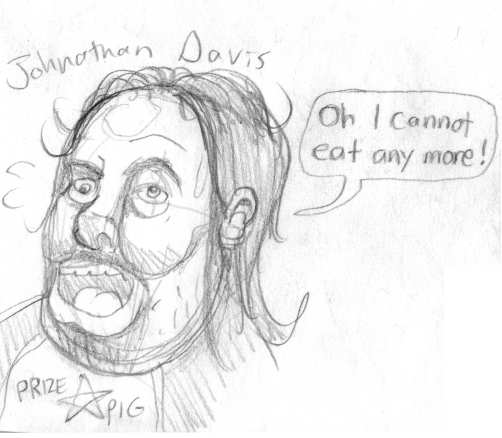 Johnathan Davis
Oh I cannot
eat any more!
PRIZE
PIG